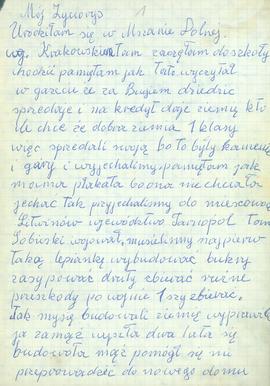 Mój Życiorys 1
Urodziłam się w Mszanie Dolnej.
wg. Krakowskim tam zaczęłam do szkoły
chodzić pamiętam jak Tato wyczytał
w gazecie że za Bugiem dziedzic
sprzedaje i na kredyt daje ziemię kto
ile chce że dobra ziemia 1 klasy
więc sprzedali swoją bo to były kamienie
i góry i wyjechaliśmy. pamiętam jak
mama płakała bo ona nie chciała
jechać Tak przyjechaliśmy do miejscowości
Litwinów województwo Tarnopol Tam
Sobieski wojował, musieliśmy najpierw
taką lepiankę wybudować bukry
zasypować druty zbierać różne
przeszkody po wojnie 1 szy zbierać.
Jak myśmy budowali ziemię wyprawiali
ja zamąż wyszła dwa lata się
budowała mąż pomógł się mi
przeprowadzić do nowego domu